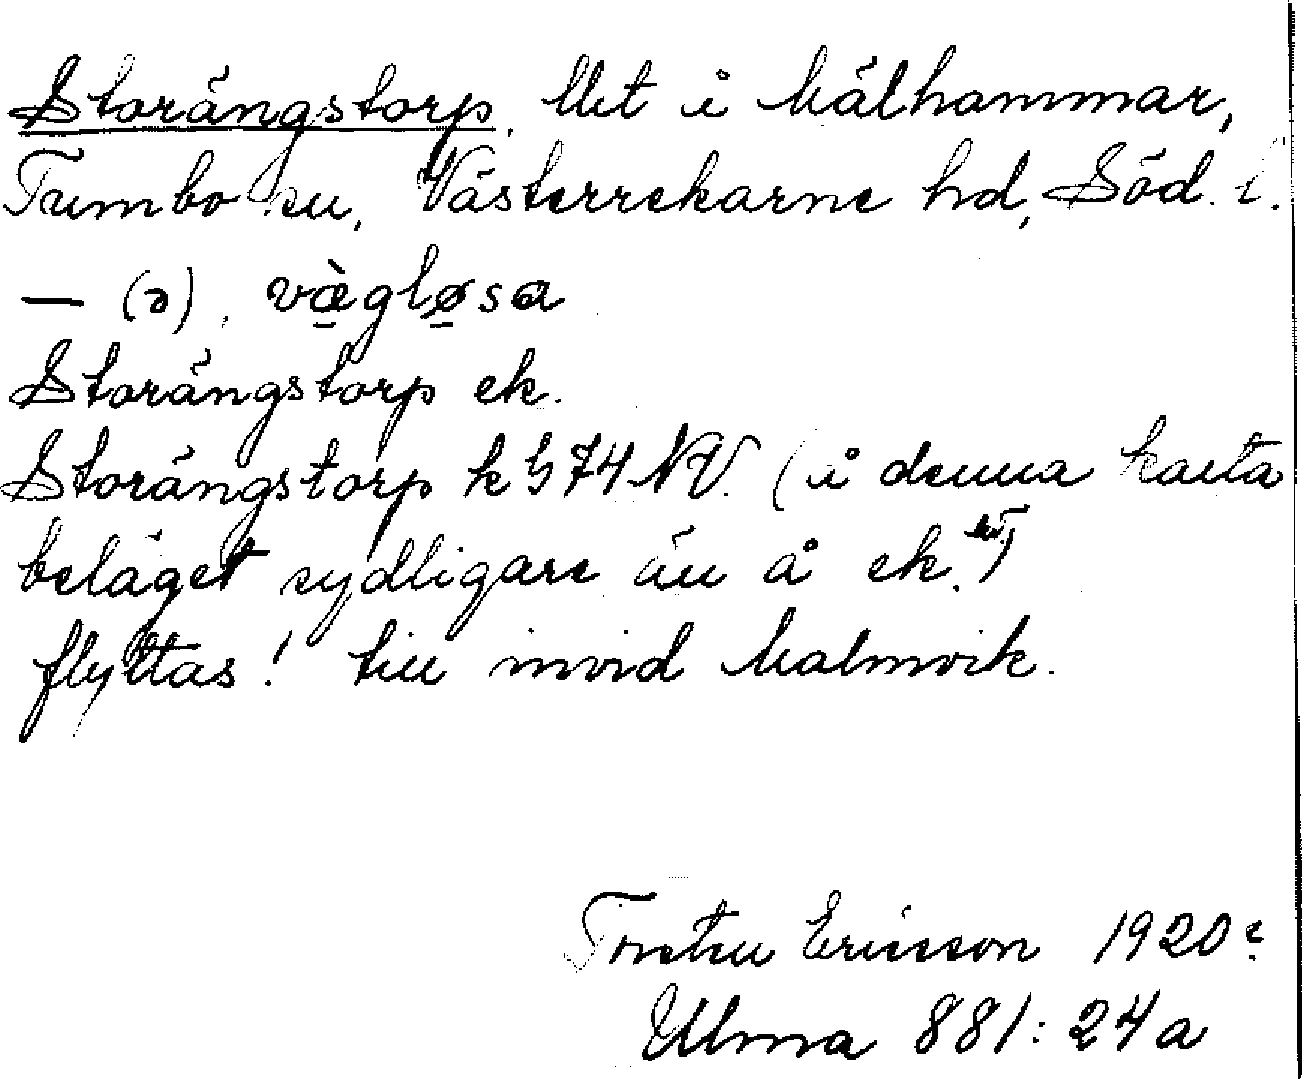 Storängstorp. Utet i Målhammar,
Tumbo sn, Västerrekarne hd, Söd. l.
— (ə), væ̀gløsa
Storängstorp ek.
Storängstorp k h 74 NV. (å denna karta
beläget sydligare än å ek.)
flyttas! till invid Malmvik.
Torsten Ericsson 1920?
Ulma 881:24a